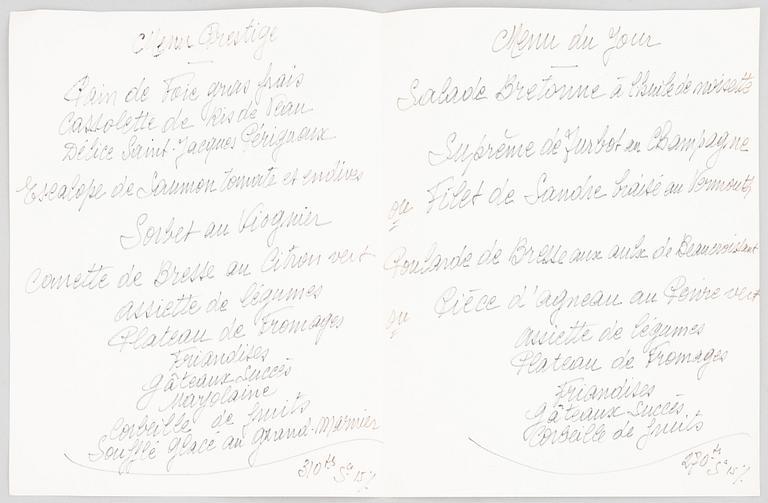 Menu Prestige
Pain de Foie gras frais
Cassolette de Ris de Veau
Délice Saint-Jacques Périgueux
Escalope de Saumon tomate et endives
Sorbet au Viognier
Canette de Bresse au Citron vert
assiette de légumes
Plateau de Fromages
Friandises
Gâteaux Succès
Marjolaine
Corbeille de fruits
Soufflé Glacé au Grand-Marnier
310 fs Sce 15%
Menu du Jour
Salade Bretonne à l'huile de noisette
Suprême de Turbot au Champagne
ou Filet de Sandre braisé au Vermouth
Poularde de Bresse aux aulx de
ou Pièce d'agneau au Poivre vert
assiette de légumes
Plateau de Fromages
Friandises
Gâteaux Succès
Corbeille de fruits
270 fs Sce 15%